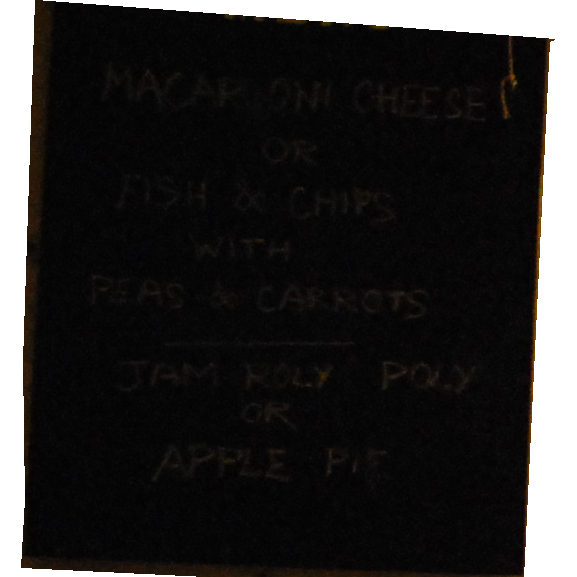 MACARONI CHEESE
OR
FISH & CHIPS
WITH
PEAS & CARROTS
JAM ROLY POLY
OR
APPLE PIE